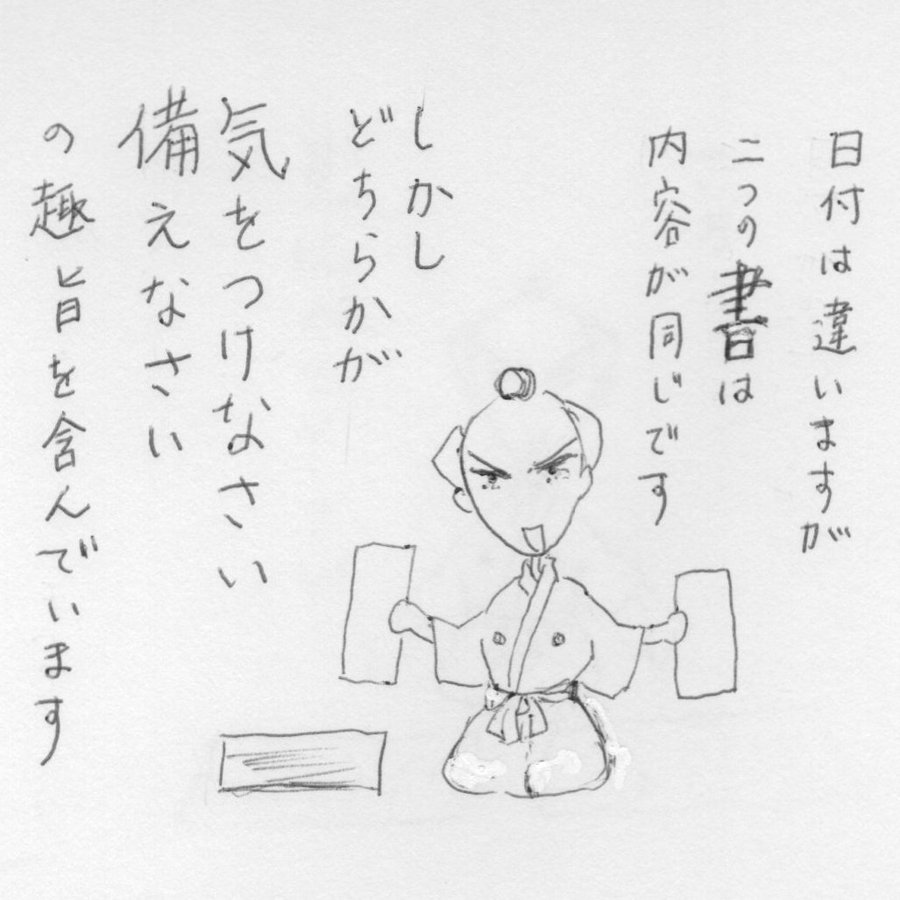 日付は違いますが
二つの書は
内容が同じです
しかし
どちらかが
気をつけなさい
備えなさい
の趣旨を含んでいます